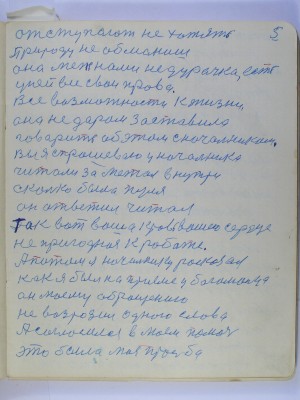 5
отступают не хотять
природу не обманиш
она меж нами не дурачка, есть
у ней все свои права.
Все возможности к жизни
она не даром заставила
говорить об этом с началником.
Вы з
у началника
читали
внутри
сколко была
он ответил читал
Так вот ваша кров ваше сердце
не пригодная к работе.
А потом я началнику росказал
как я был на приеме у
он моему
не возрозил одного слова
А согласился в моем
это была моя прозба